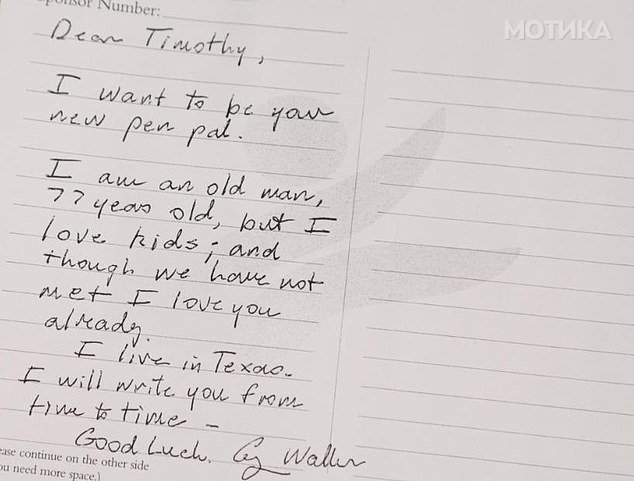 onsor Number:
МОТИКА
Dear Timothy,
I want to be your
new pen pal.
I am an old man,
77 years old, but I
love kids; and
though we have not
met I love you
already.
I live in Texas-
I will write you from
time to time -
Good Luck. G. Walker
ease continue on the other side
ou need more space.)